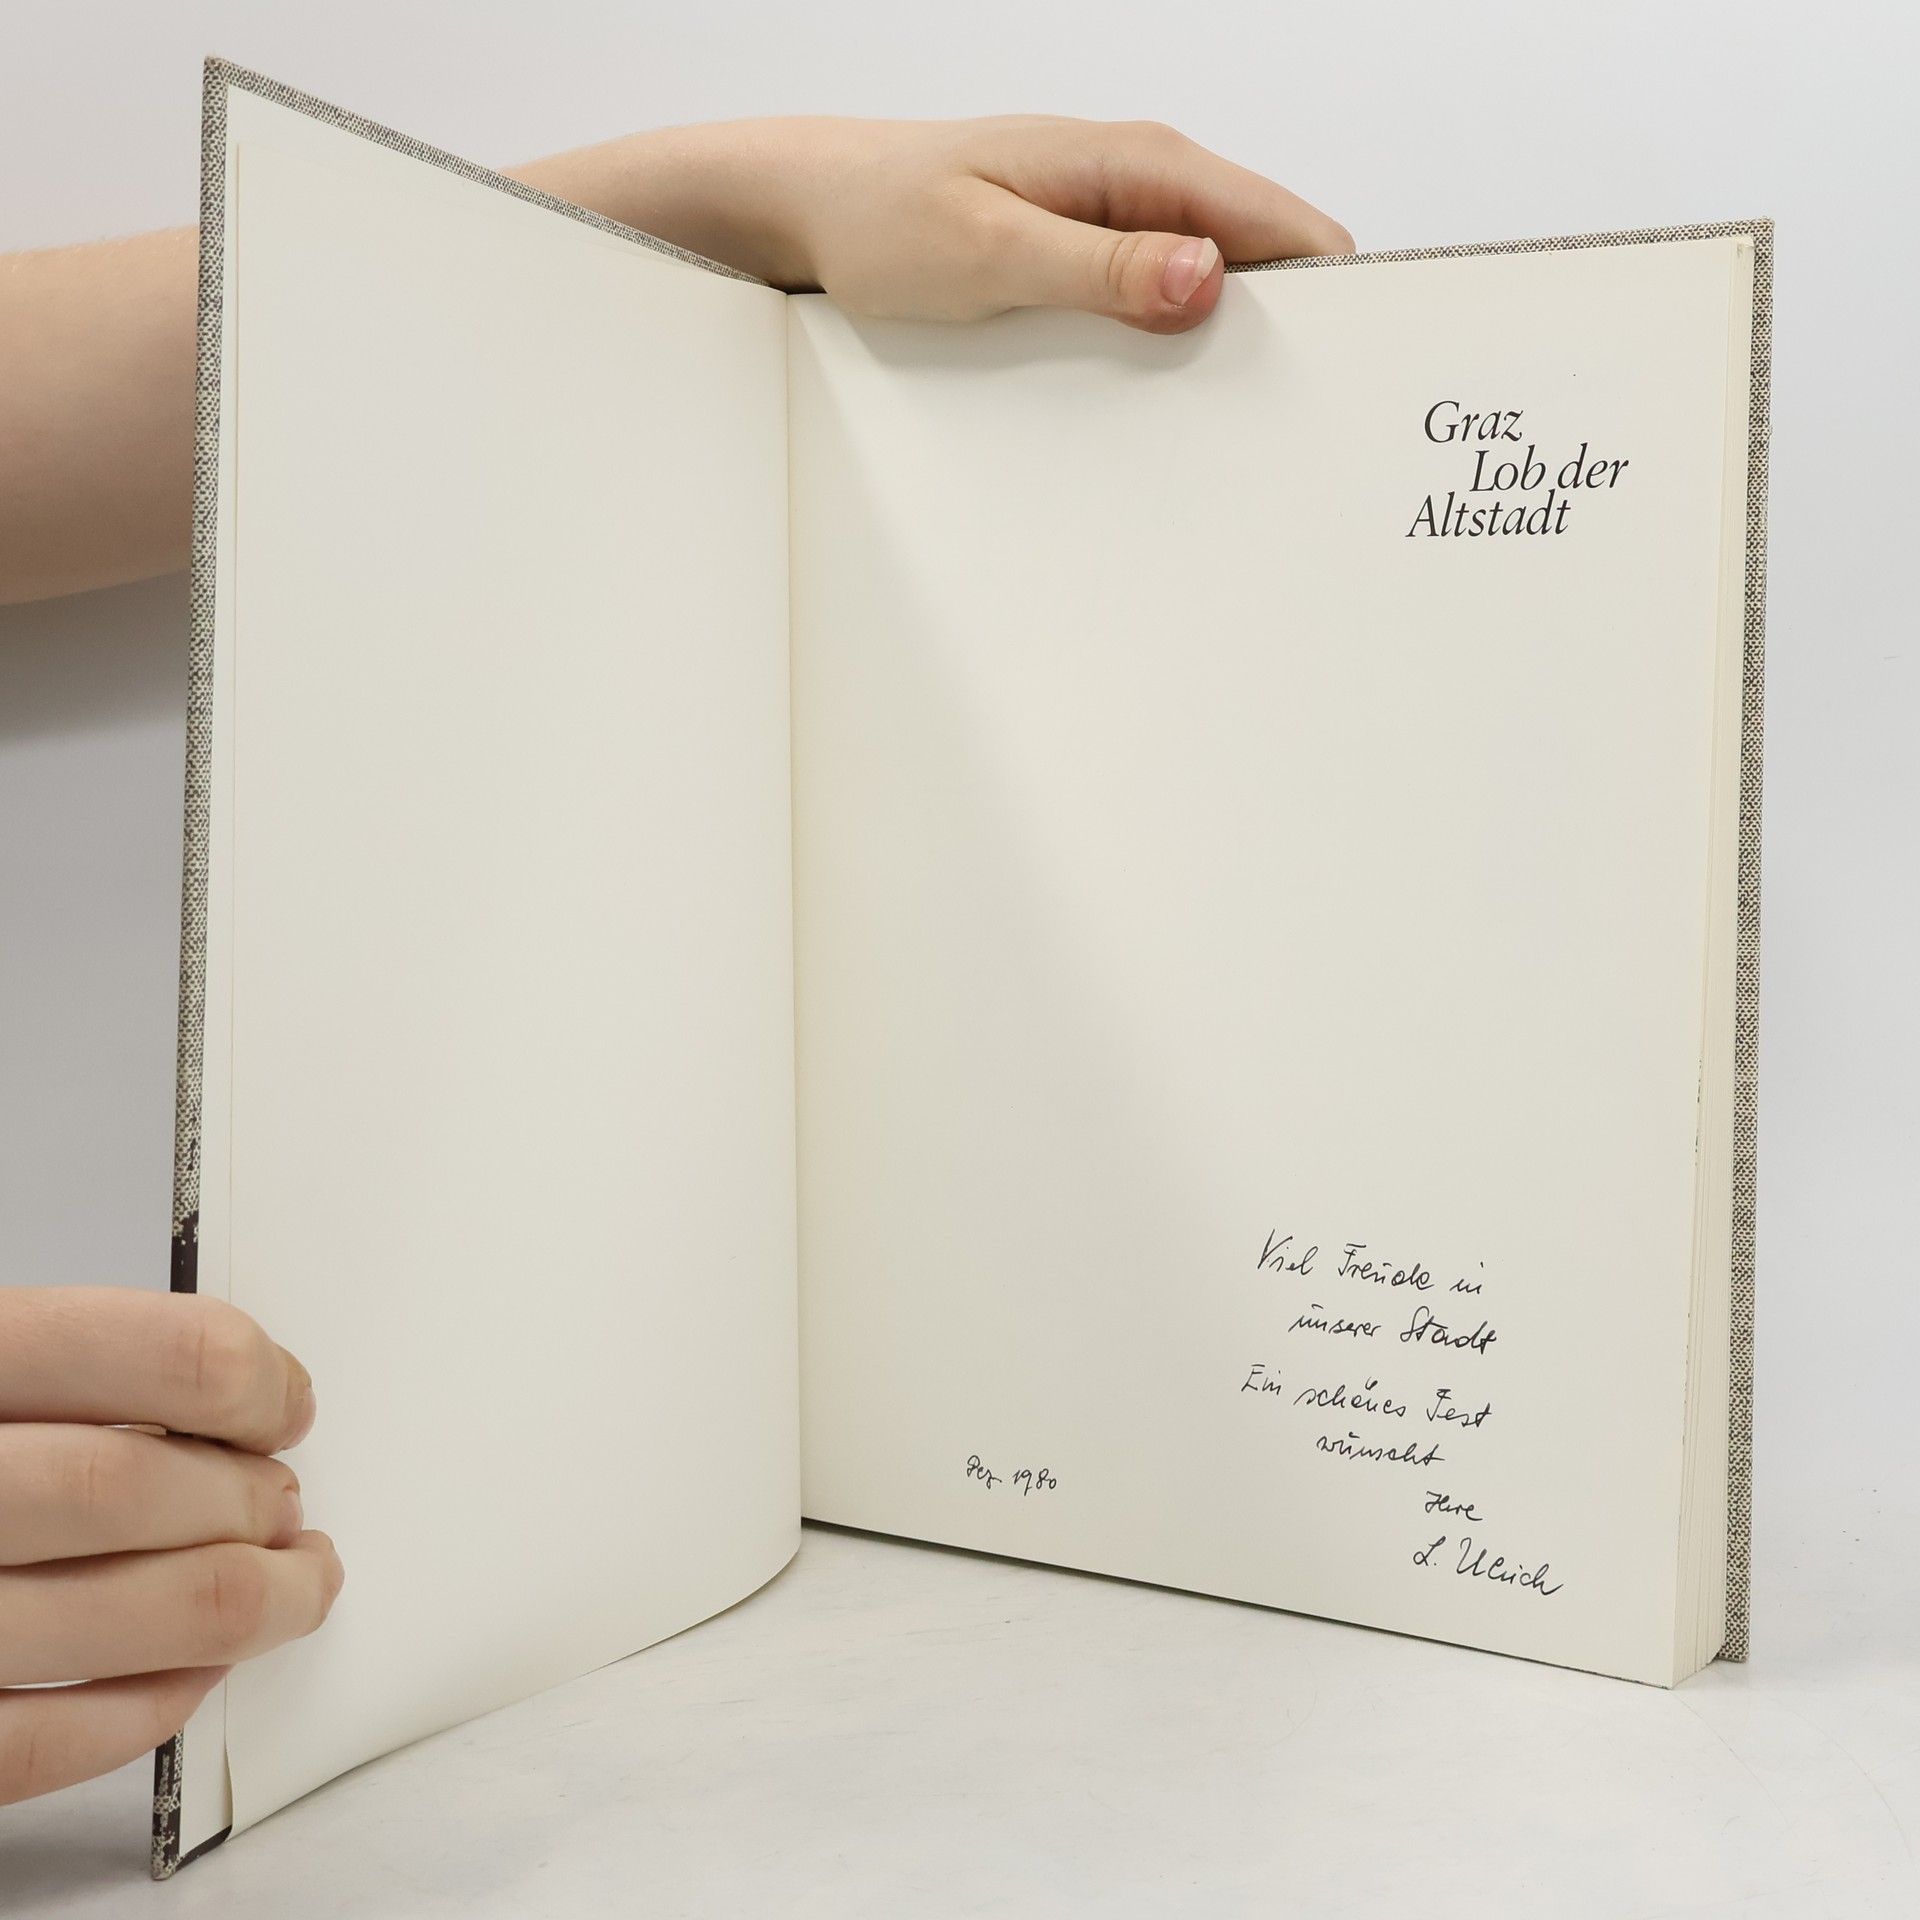 Graz
Lob der
Altstadt
Viel Freude in
unserer Stadt
Ein schönes Fest
wünscht
Ihre
L. Ulrich
Dez. 1980